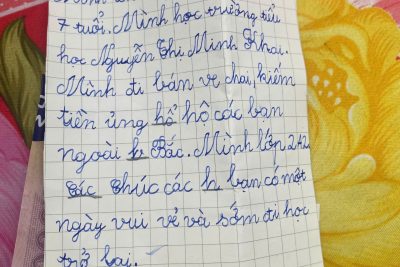 7 tuổi. Mình học trường tiểu
học Nguyễn Thị Minh Khai.
Mình đi bán ve chai, kiếm
tiền ủng hổ hô các bạn
ngoài bi Bắc. Mình lớn 2A2
các chúc các b bạn có một
ngày vui vẻ và sớm đi học
trở lại.